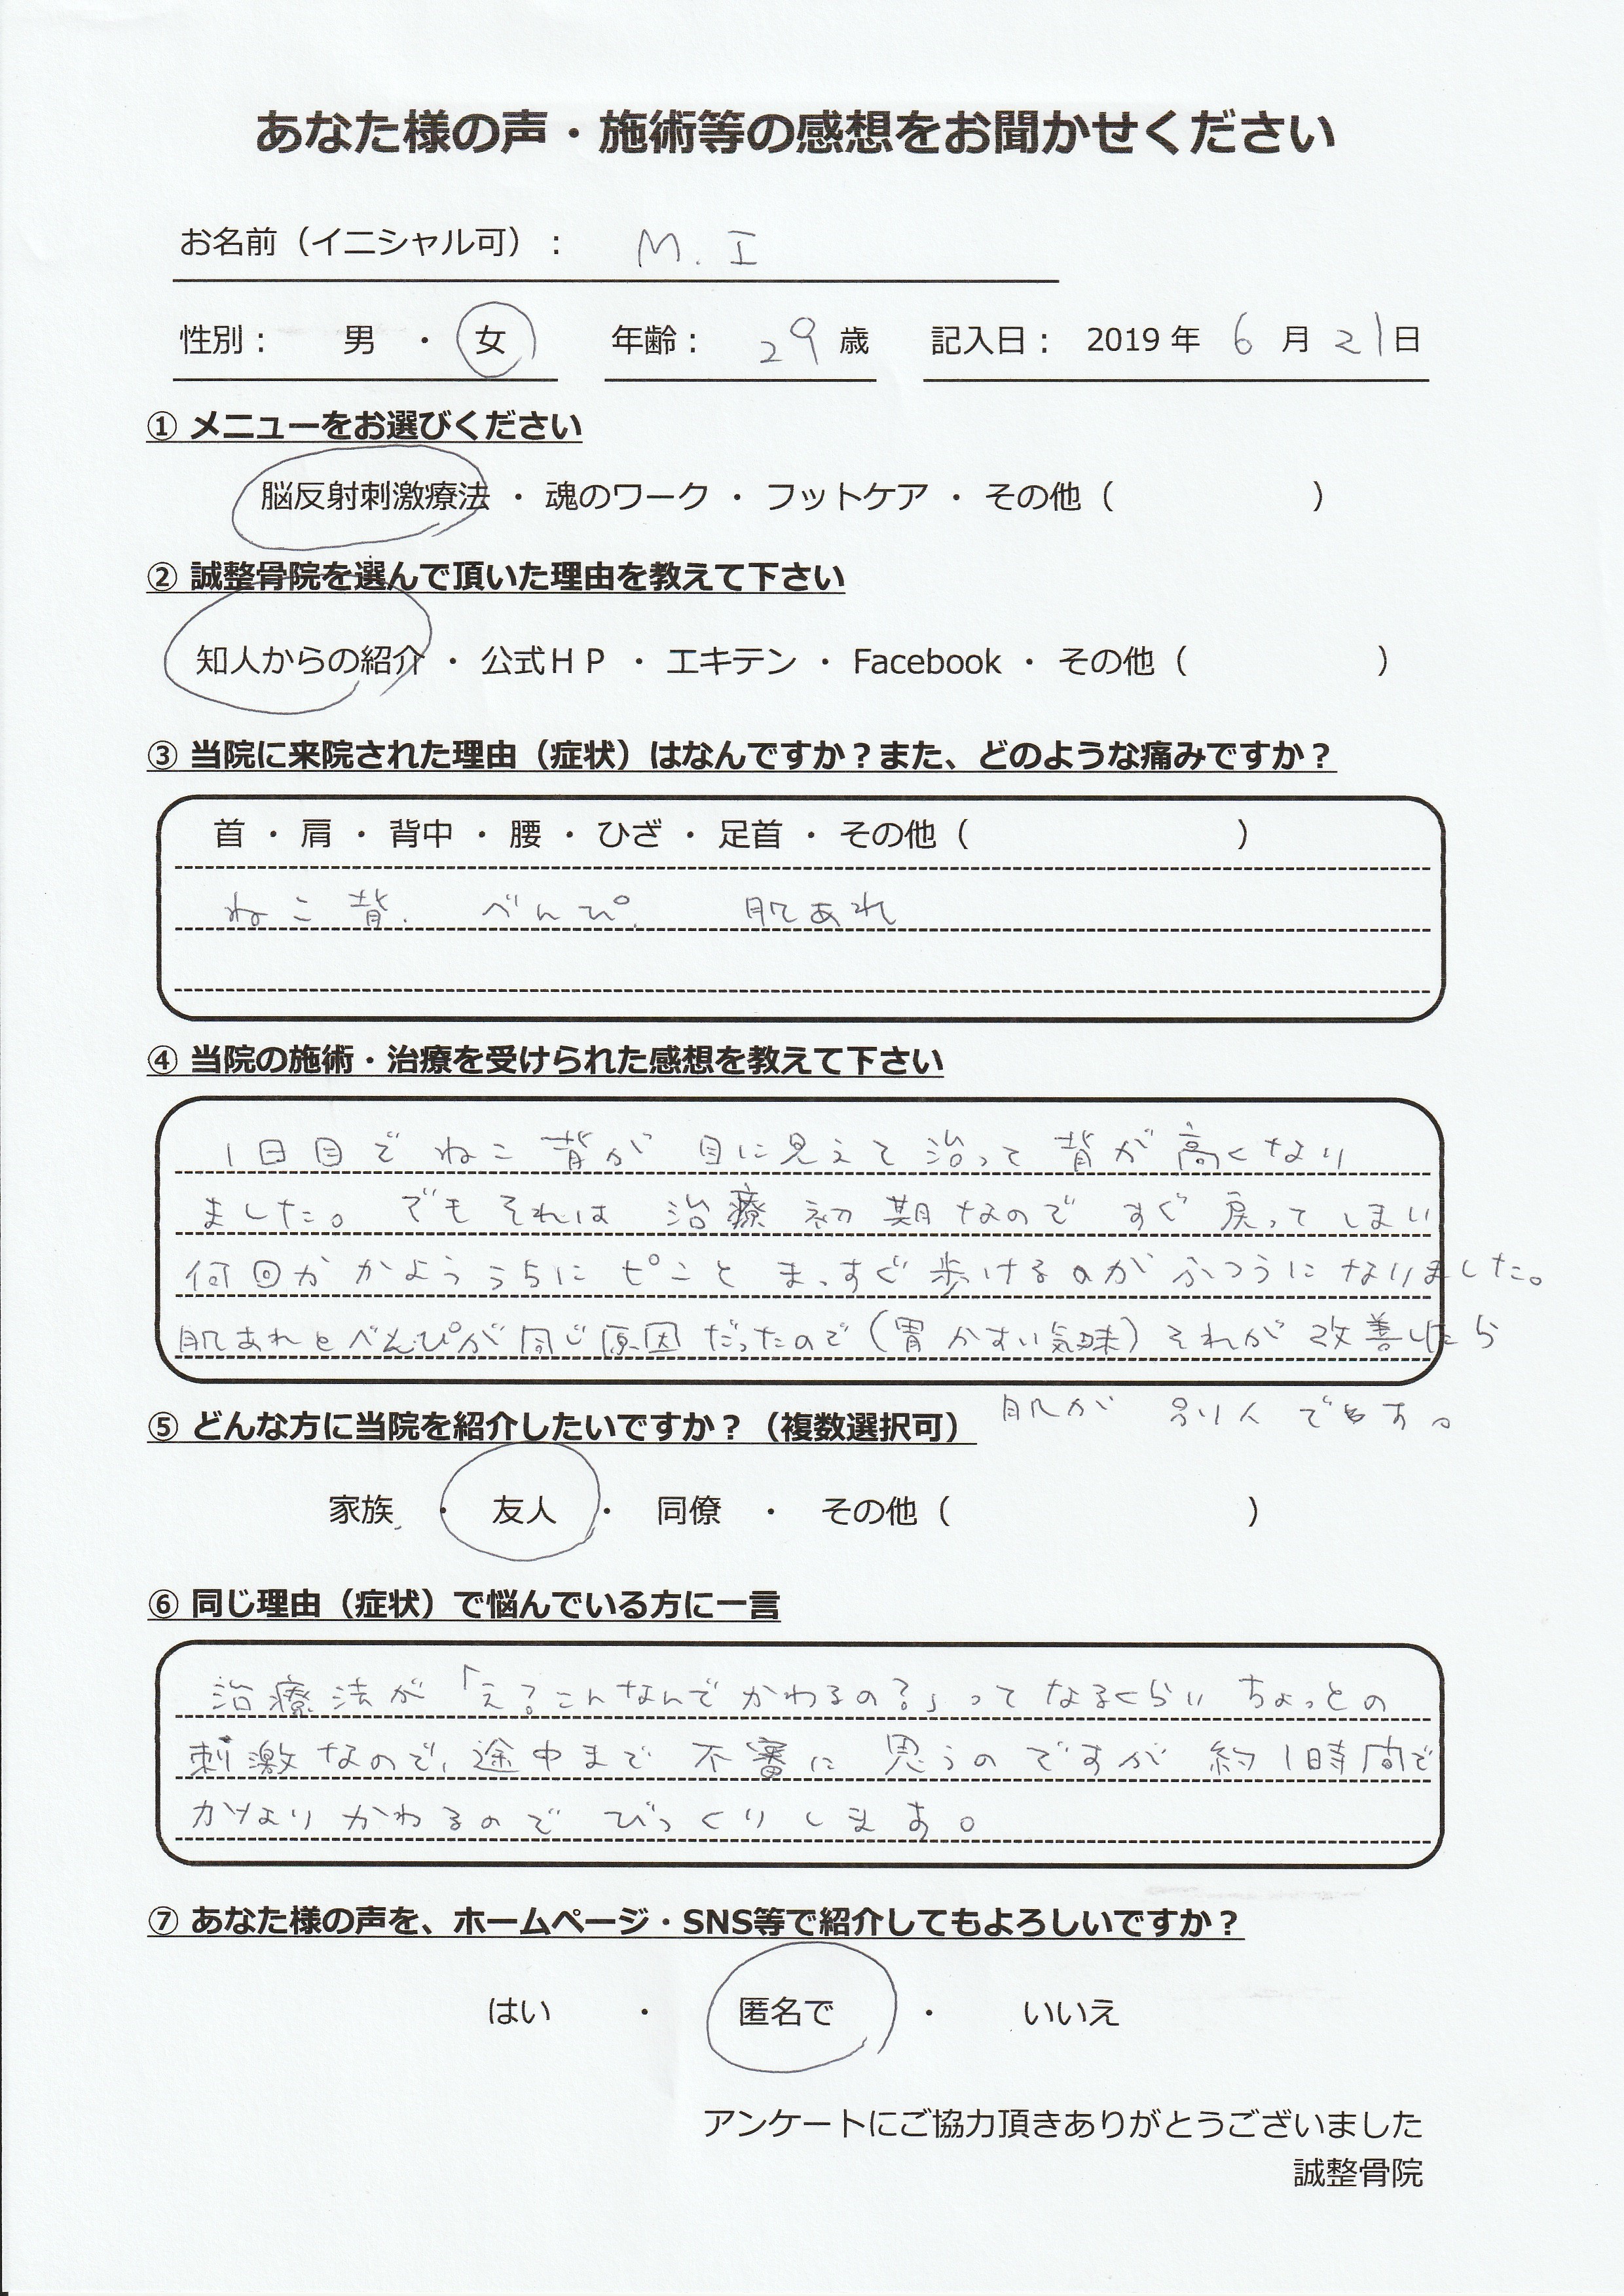 あなた様の声・施術等の感想をお聞かせください
お名前（イニシャル可）： M. I
性別： 男 ・ 女 年齢： 29 歳 記入日： 2019 年 6 月 21 日
① メニューをお選びください
脳反射刺激療法 ・ 魂のワーク ・ フットケア ・ その他（ ）
② 誠整骨院を選んで頂いた理由を教えて下さい
知人からの紹介 ・ 公式ＨＰ ・ エキテン ・ Facebook ・ その他（ ）
③ 当院に来院された理由（症状）はなんですか？また、どのような痛みですか？
首 ・ 肩 ・ 背中 ・ 腰 ・ ひざ ・ 足首 ・ その他（ ）
ねこ背. べんぴ. 肌あれ
④ 当院の施術・治療を受けられた感想を教えて下さい
1日目でねこ背が目に見えて治って背が高くなり
ました。でもそれは治療初期なのですぐ戻ってしまい
何回かかよううちにピンとまっすぐ歩けるのがふつうになりました。
肌あれとべんぴが同じ原因だったので（胃かすい気味）それが改善したら
肌が別人です。
⑤ どんな方に当院を紹介したいですか？（複数選択可）
家族 ・ 友人 ・ 同僚 ・ その他（ ）
⑥ 同じ理由（症状）で悩んでいる方に一言
治療法が「え？こんなんでかわるの？」ってなるくらいちょっとの
刺激なので、途中まで不審に思うのですが約1時間で
かなりかわるのでびっくりします。
⑦ あなた様の声を、ホームページ・SNS等で紹介してもよろしいですか？
はい ・ 匿名で ・ いいえ
アンケートにご協力頂きありがとうございました
誠整骨院